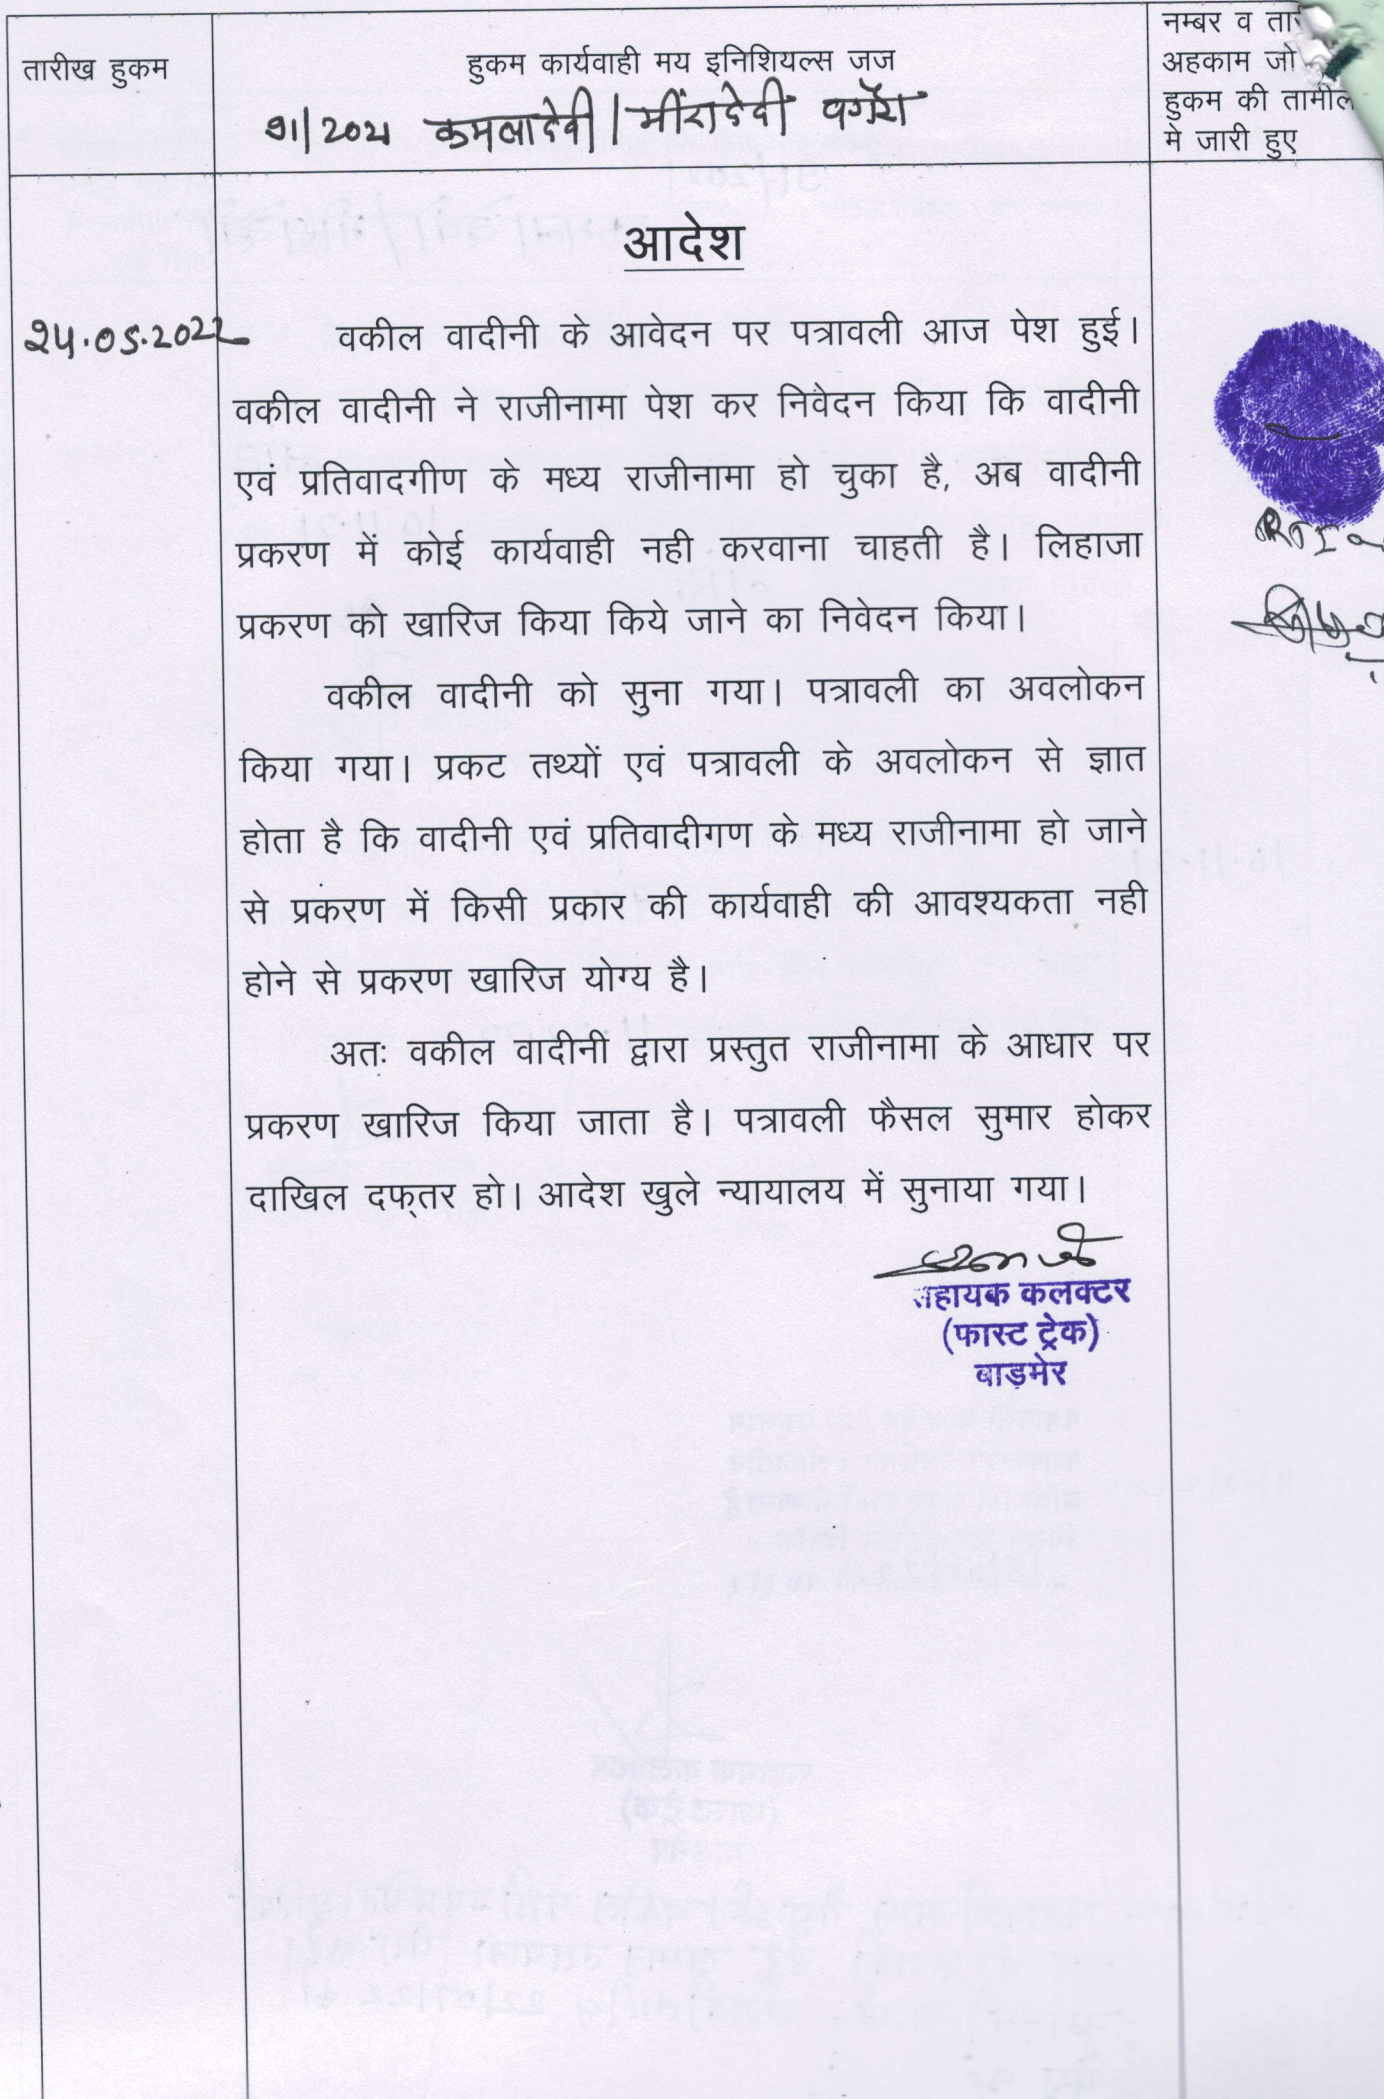 तारीख हुकम
हुकम कार्यवाही मय इनिशियल्स जज
91/2021 कमलादेवी/मीरादेवी वगैरा
नम्बर व तारी
अहकाम जो
हुकम की तामील
मे जारी हुए
आदेश
24.05.2022
वकील वादीनी के आवेदन पर पत्रावली आज पेश हुई।
वकील वादीनी ने राजीनामा पेश कर निवेदन किया कि वादीनी
एवं प्रतिवादगीण के मध्य राजीनामा हो चुका है, अब वादीनी
प्रकरण में कोई कार्यवाही नही करवाना चाहती है। लिहाजा
प्रकरण को खारिज किया किये जाने का निवेदन किया।
वकील वादीनी को सुना गया। पत्रावली का अवलोकन
किया गया। प्रकट तथ्यों एवं पत्रावली के अवलोकन से ज्ञात
होता है कि वादीनी एवं प्रतिवादीगण के मध्य राजीनामा हो जाने
से प्रकरण में किसी प्रकार की कार्यवाही की आवश्यकता नही
होने से प्रकरण खारिज योग्य है।
अतः वकील वादीनी द्वारा प्रस्तुत राजीनामा के आधार पर
प्रकरण खारिज किया जाता है। पत्रावली फैसल सुमार होकर
दाखिल दफ्तर हो। आदेश खुले न्यायालय में सुनाया गया।
सहायक कलक्टर
(फास्ट ट्रेक)
बाड़मेर